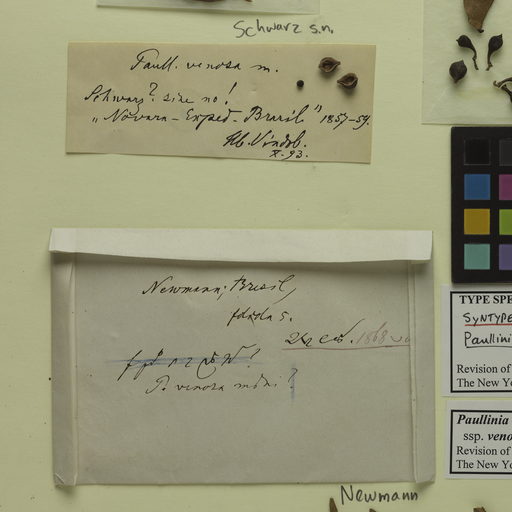 Schwarz s.n.
Paull. venosa m.
Schwarz? sine no!
"Novara - Exped. - Brasil" 1857-59.
Hb. Vindob.
X. 93.
Newmann; Brasil,
1868
P. venosa m
Newmann
TYPE SPE
SYNTYPE
Paullini
Revision of
The New Yo
Paullinia
ssp. veno
Revision of
The New Yo